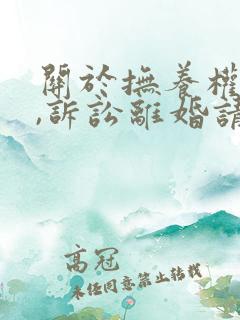 關於撫養權
,訴訟離婚請
高冠
未经同意禁止转载